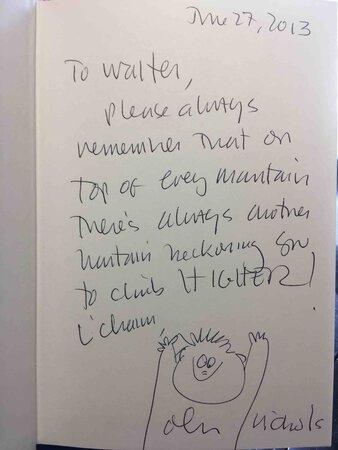 June 27, 2013
To Walter,
please always
remember that on
top of every mountain
there's always another
mountain beckoning you
to climb HIGHER!
L'chaim
John Nichols